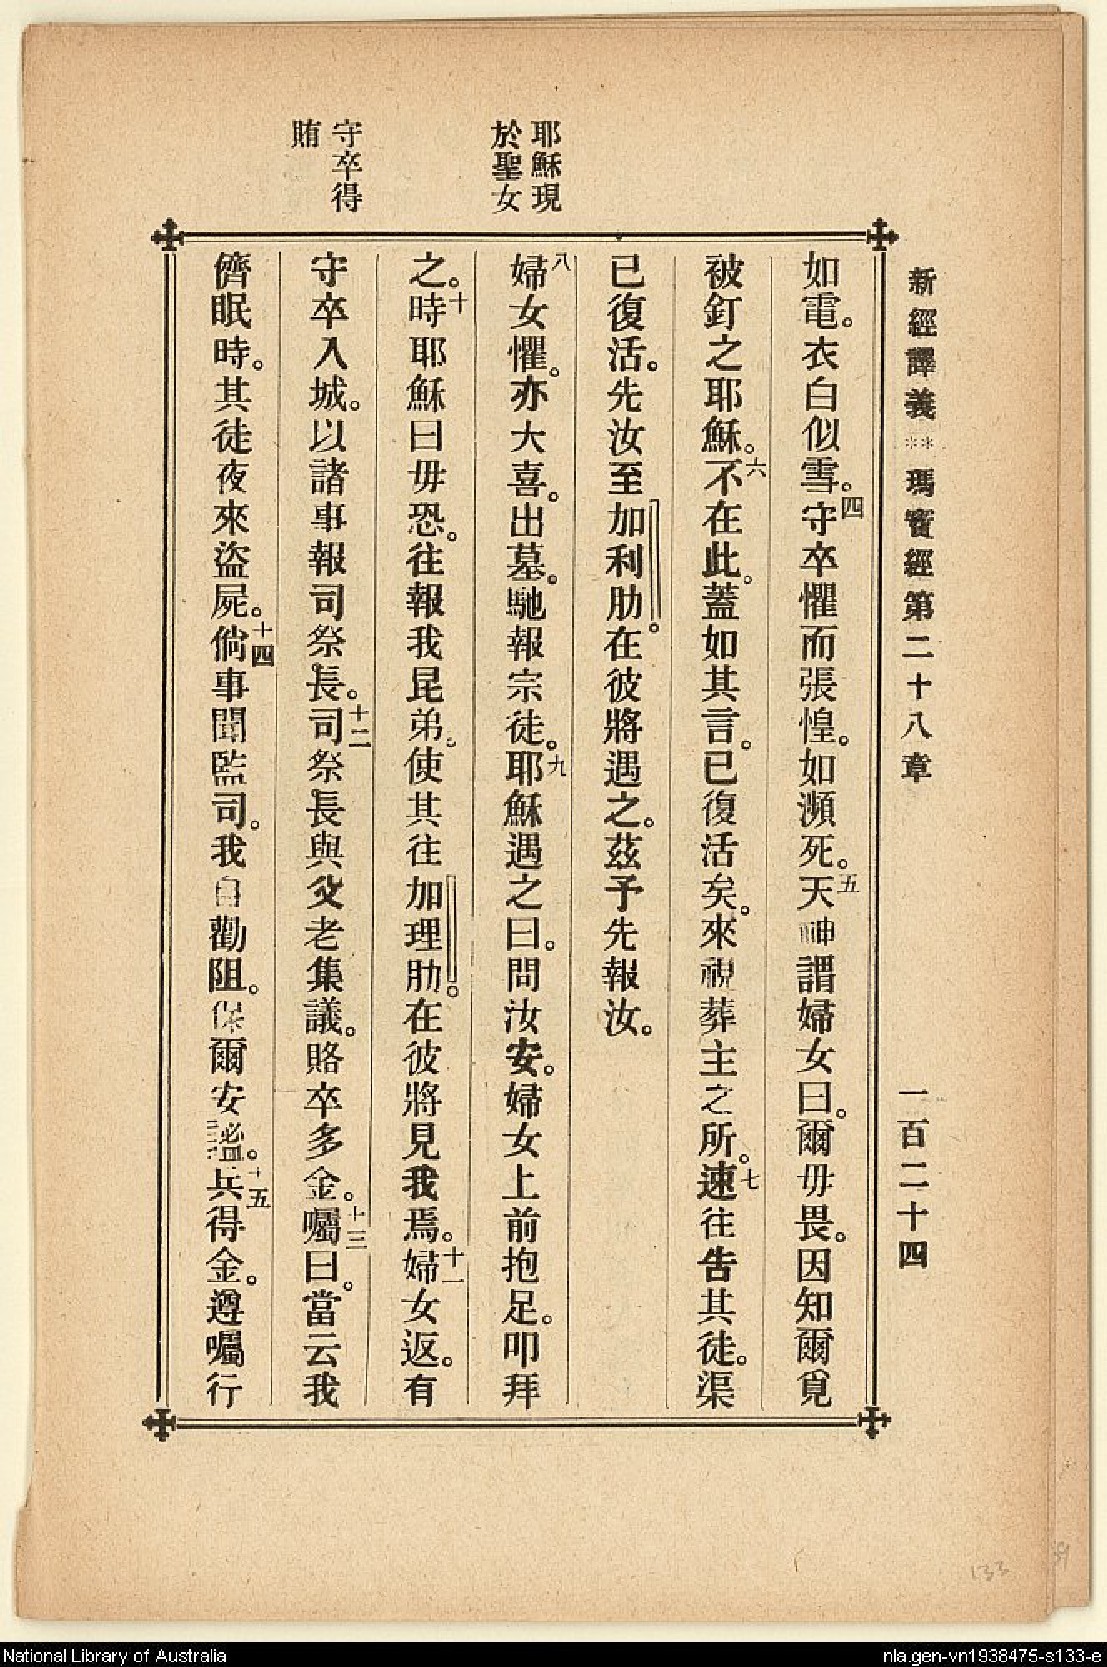 新經譯義**瑪竇經第二十八章 一百二十四
耶穌現
於聖女
守卒得
賄
如電。衣白似雪。四守卒懼而張惶。如瀕死。五天神謂婦女曰。爾毋畏。因知爾覓
被釘之耶穌。六不在此。蓋如其言。已復活矣。來視葬主之所。七速往告其徒。渠
已復活。先汝至加利肋。在彼將遇之。茲予先報汝。
八婦女懼。亦大喜。出墓。馳報宗徒。九耶穌遇之曰。問汝安。婦女上前抱足。叩拜
之。十時耶穌曰毋恐。往報我昆弟。使其往加理肋。在彼將見我焉。十一婦女返。有
守卒入城。以諸事報司祭長。十二司祭長與父老集議。賂卒多金。十三囑曰。當云我
儕眠時。其徒夜來盜屍。十四倘事聞監司。我自勸阻。保爾安謐。十五兵得金。遵囑行
National Library of Australia
nla.gen-vn1938475-s133-e
133